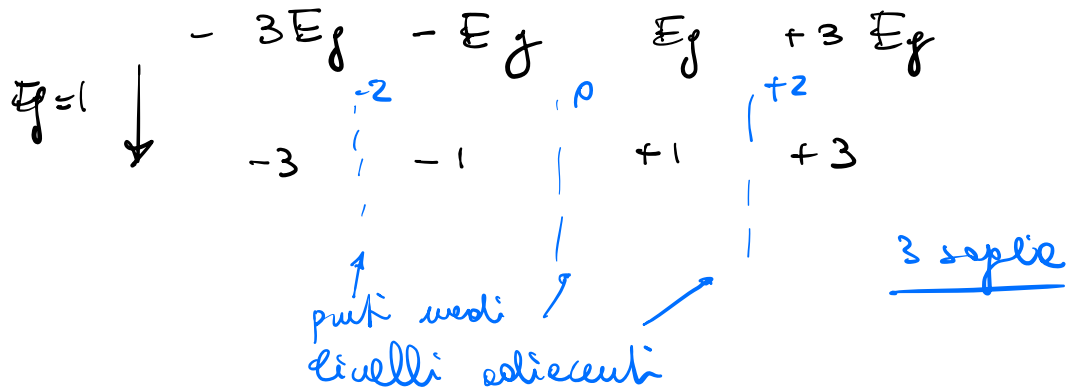 - 3Eg - Eg Eg +3 Eg
Eg=1
-2 0 +2
-3 -1 +1 +3
3 soglie
punti medi
livelli adiacenti